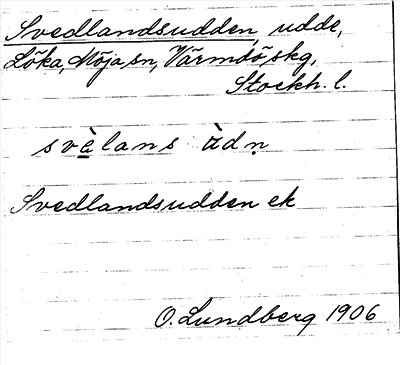 Svedlandsudden, udde,
Löka, Möja sn, Värmdö skg,
Stockh. l.
svὲlans ὰdṇ
Svedlandsudden ek
O. Lundberg 1906